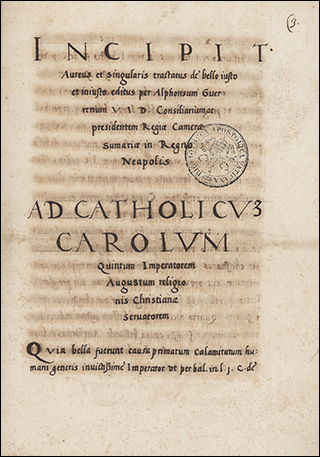 3.
INCIPIT.
Aureus et singularis tractatus de bello iusto
et iniusto editus per Alphonsum Guer
rerium V. I. D. Consiliariumac
presidentem Regiæ Cameræ
Sumariæ in Regno
Neapolis
BIBLIOTHECA APOSTOLICA VATICANA
AD CATHOLICUȜ
CAROLUM
Quintum Imperatorem
Augustum religio
nis Christianæ
seruatorem
Quia bella fuerunt causa primarum calamitatum hu⸗
mani generis inuictissime Imperator ut per bal. in l. j. C. de